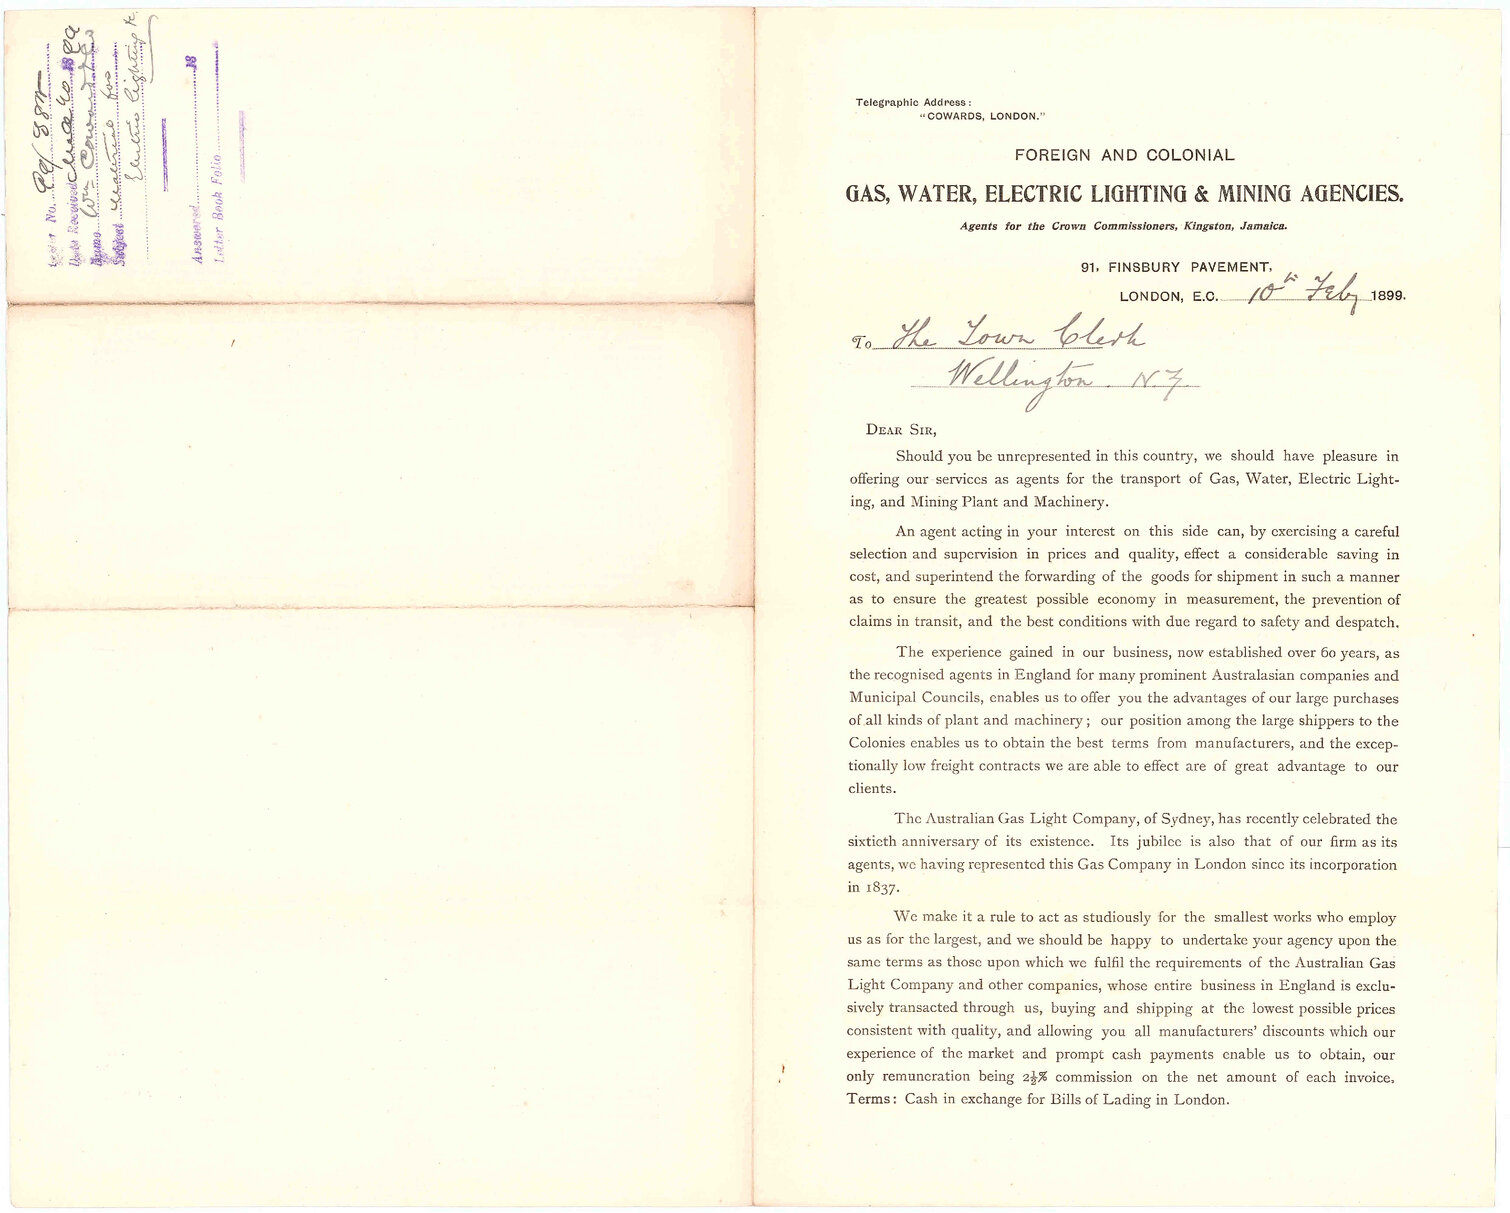 Letter No. 99/
Date Received March 20 1899
Name Wm Coward & Co
Subject Material for
Electric Lighting &c.
Answered 18
Letter Book Folio
Telegraphic Address:
"COWARDS, LONDON."
FOREIGN AND COLONIAL
GAS, WATER, ELECTRIC LIGHTING & MINING AGENCIES.
Agents for the Crown Commissioners, Kingston, Jamaica.
91, FINSBURY PAVEMENT,
LONDON, E.C. 10th Feby 1899.
To The Town Clerk
Wellington. N.Z.
DEAR SIR,
Should you be unrepresented in this country, we should have pleasure in
offering our services as agents for the transport of Gas, Water, Electric Light-
ing, and Mining Plant and Machinery.
An agent acting in your interest on this side can, by exercising a careful
selection and supervision in prices and quality, effect a considerable saving in
cost, and superintend the forwarding of the goods for shipment in such a manner
as to ensure the greatest possible economy in measurement, the prevention of
claims in transit, and the best conditions with due regard to safety and despatch.
The experience gained in our business, now established over 60 years, as
the recognised agents in England for many prominent Australasian companies and
Municipal Councils, enables us to offer you the advantages of our large purchases
of all kinds of plant and machinery; our position among the large shippers to the
Colonies enables us to obtain the best terms from manufacturers, and the excep-
tionally low freight contracts we are able to effect are of great advantage to our
clients.
The Australian Gas Light Company, of Sydney, has recently celebrated the
sixtieth anniversary of its existence. Its jubilee is also that of our firm as its
agents, we having represented this Gas Company in London since its incorporation
in 1837.
We make it a rule to act as studiously for the smallest works who employ
us as for the largest, and we should be happy to undertake your agency upon the
same terms as those upon which we fulfil the requirements of the Australian Gas
Light Company and other companies, whose entire business in England is exclu-
sively transacted through us, buying and shipping at the lowest possible prices
consistent with quality, and allowing you all manufacturers' discounts which our
experience of the market and prompt cash payments enable us to obtain, our
only remuneration being 2½% commission on the net amount of each invoice.
Terms: Cash in exchange for Bills of Lading in London.